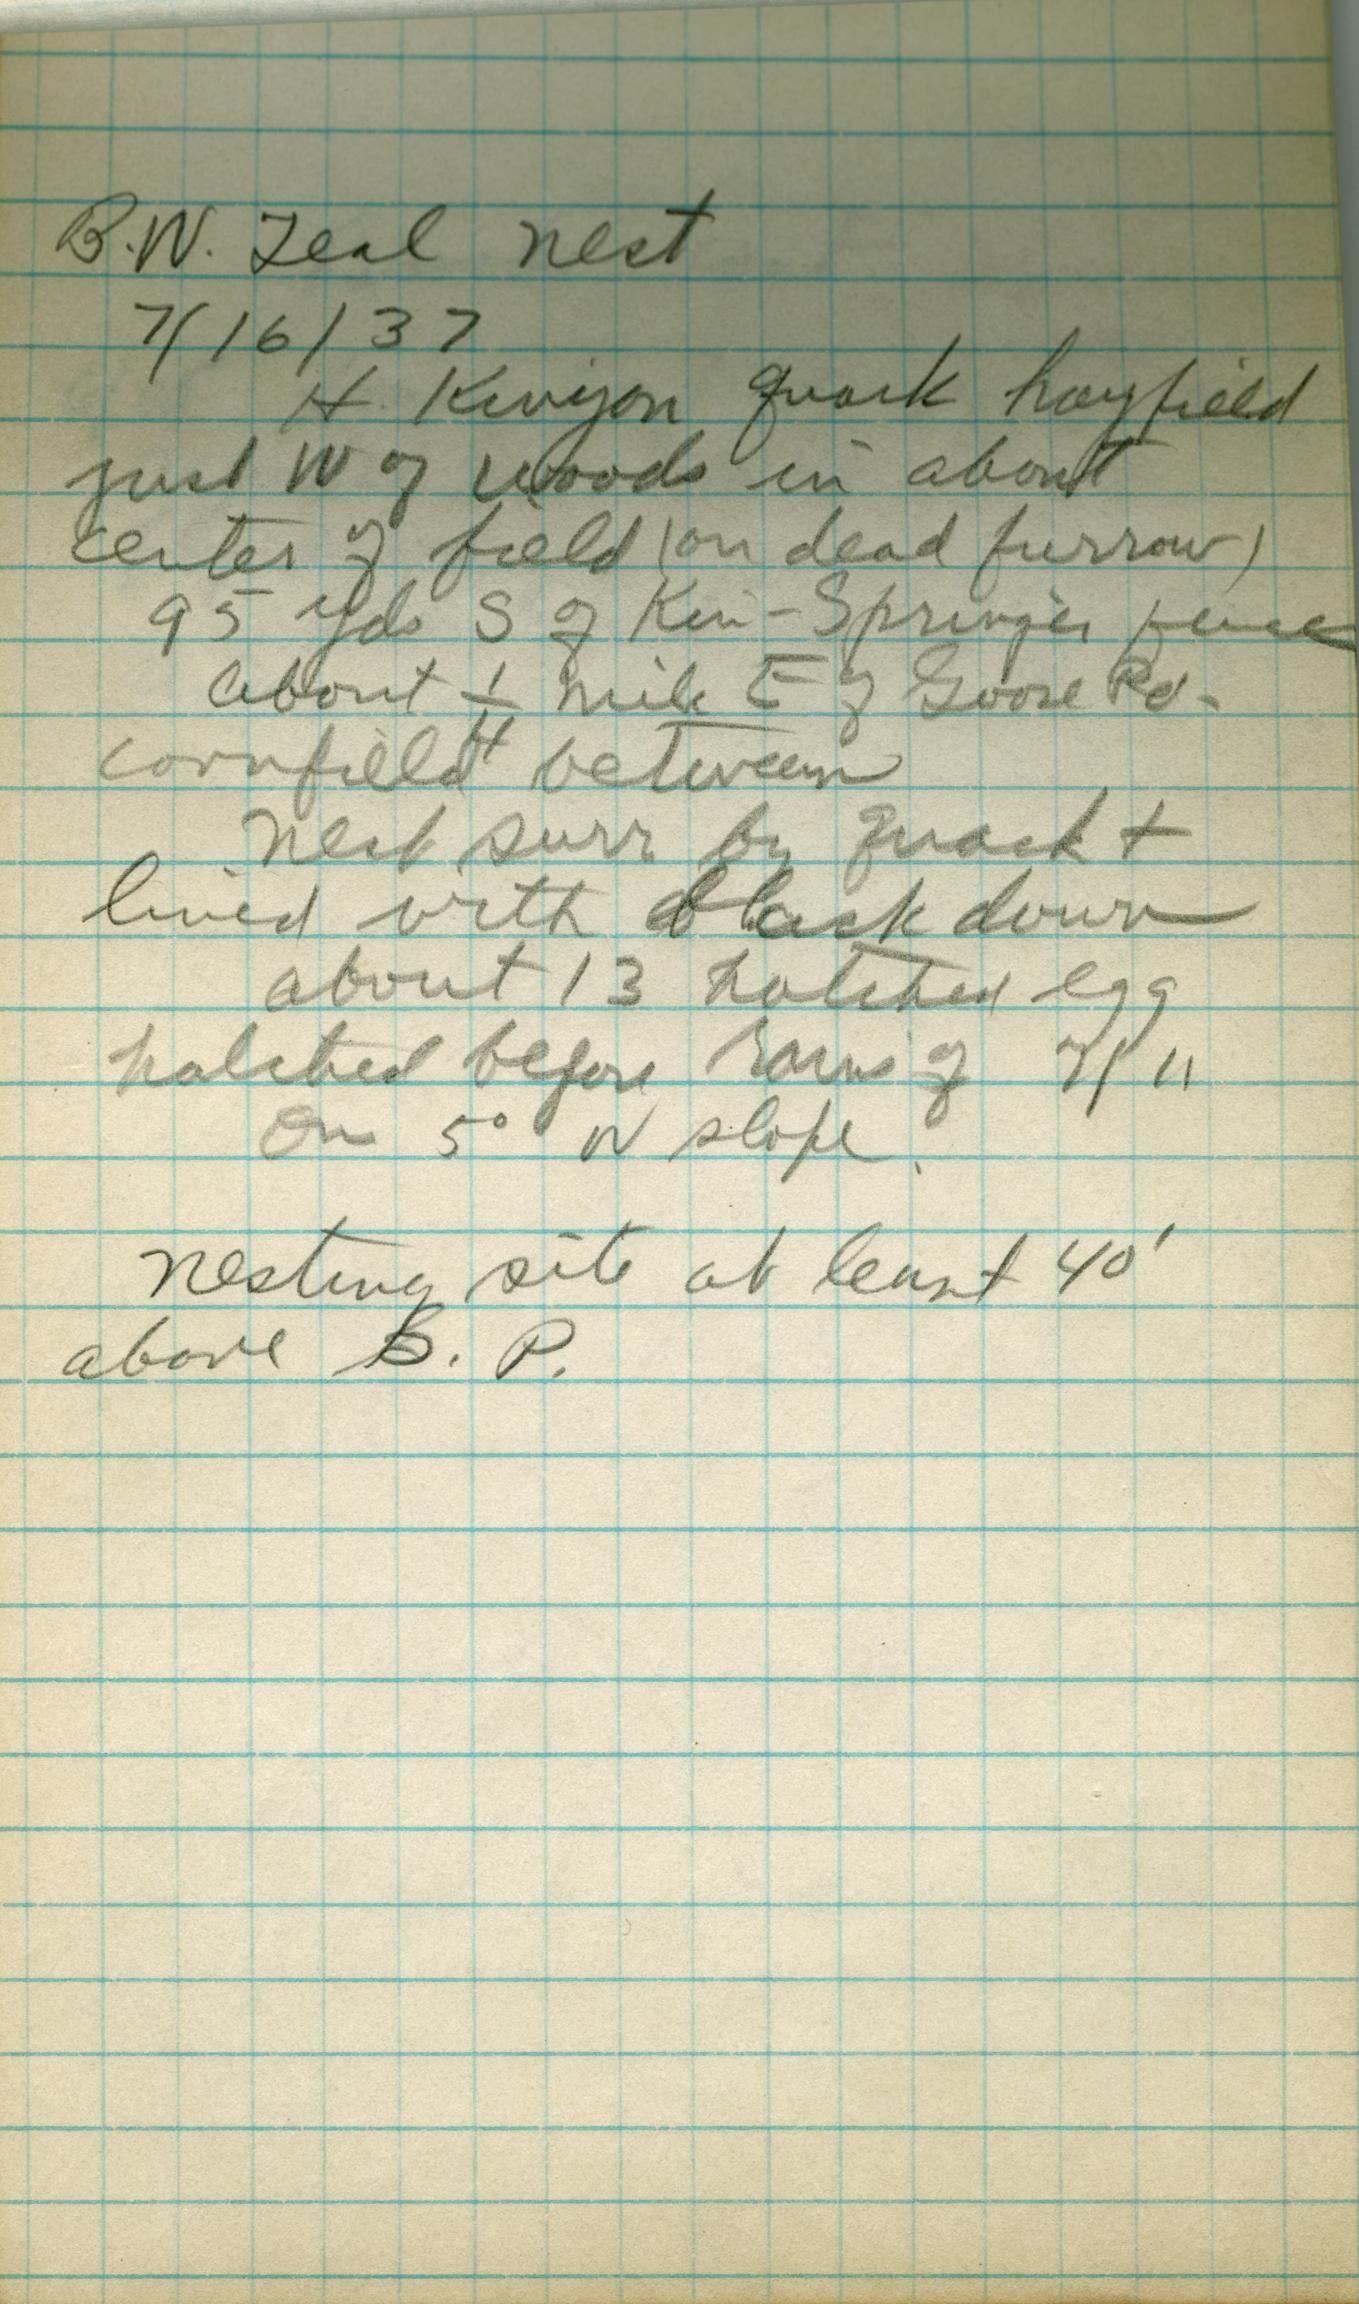 B.W. Teal nest
7/16/37
H. Kinyon quack hayfield
just W of woods in about
center of field (on dead furrow)
95 yds S of Kin-Springer fence
about 1/4 mile E of Goose Pd-
cornfield between
Nest surr by quack +
lined with black down
about 13 hatched egg
hatched before rains of 7/11
On 5° W slope.
Nesting site at least 40'
above B. P.